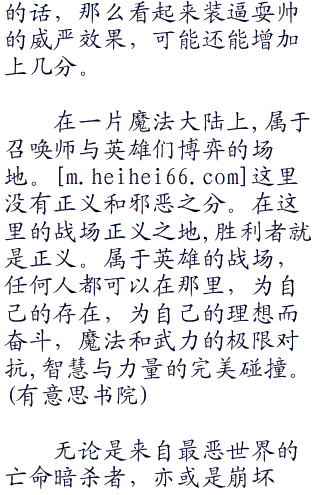 的话，那么看起来装逼耍帅
的威严效果，可能还能增加
上几分。
在一片魔法大陆上,属于
召唤师与英雄们博弈的场
地。[m.heihei66.com]这里
没有正义和邪恶之分。在这
里的战场正义之地,胜利者就
是正义。属于英雄的战场，
任何人都可以在那里，为自
己的存在，为自己的理想而
奋斗，魔法和武力的极限对
抗,智慧与力量的完美碰撞。
(有意思书院)
无论是来自最恶世界的
亡命暗杀者，亦或是崩坏